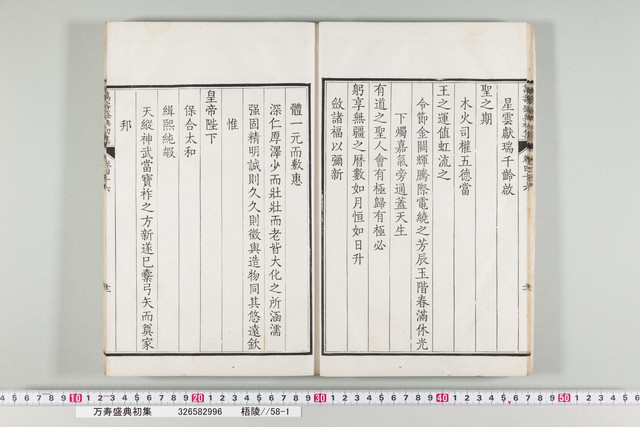 星雲獻瑞千齡啟
聖之期
木火司權五德當
王之運值虹流之
令節金闕輝騰際電繞之芳辰玉階春滿休光
下燭嘉氣旁通蓋天生
有道之聖人會有極歸有極必
躬享無疆之曆數如月恒如日升
斂諸福以彌新
體一元而敷惠
深仁厚澤少而壯壯而老皆大化之所涵濡
强固精明誠則久久則徵與造物同其悠遠欽
惟
皇帝陛下
保合太和
緝熙純嘏
天縱神武當寶祚之方新遂已櫜弓矢而奠家
邦
10 20 30 40 50
万寿盛典初集 326582996 梧陵//58-1